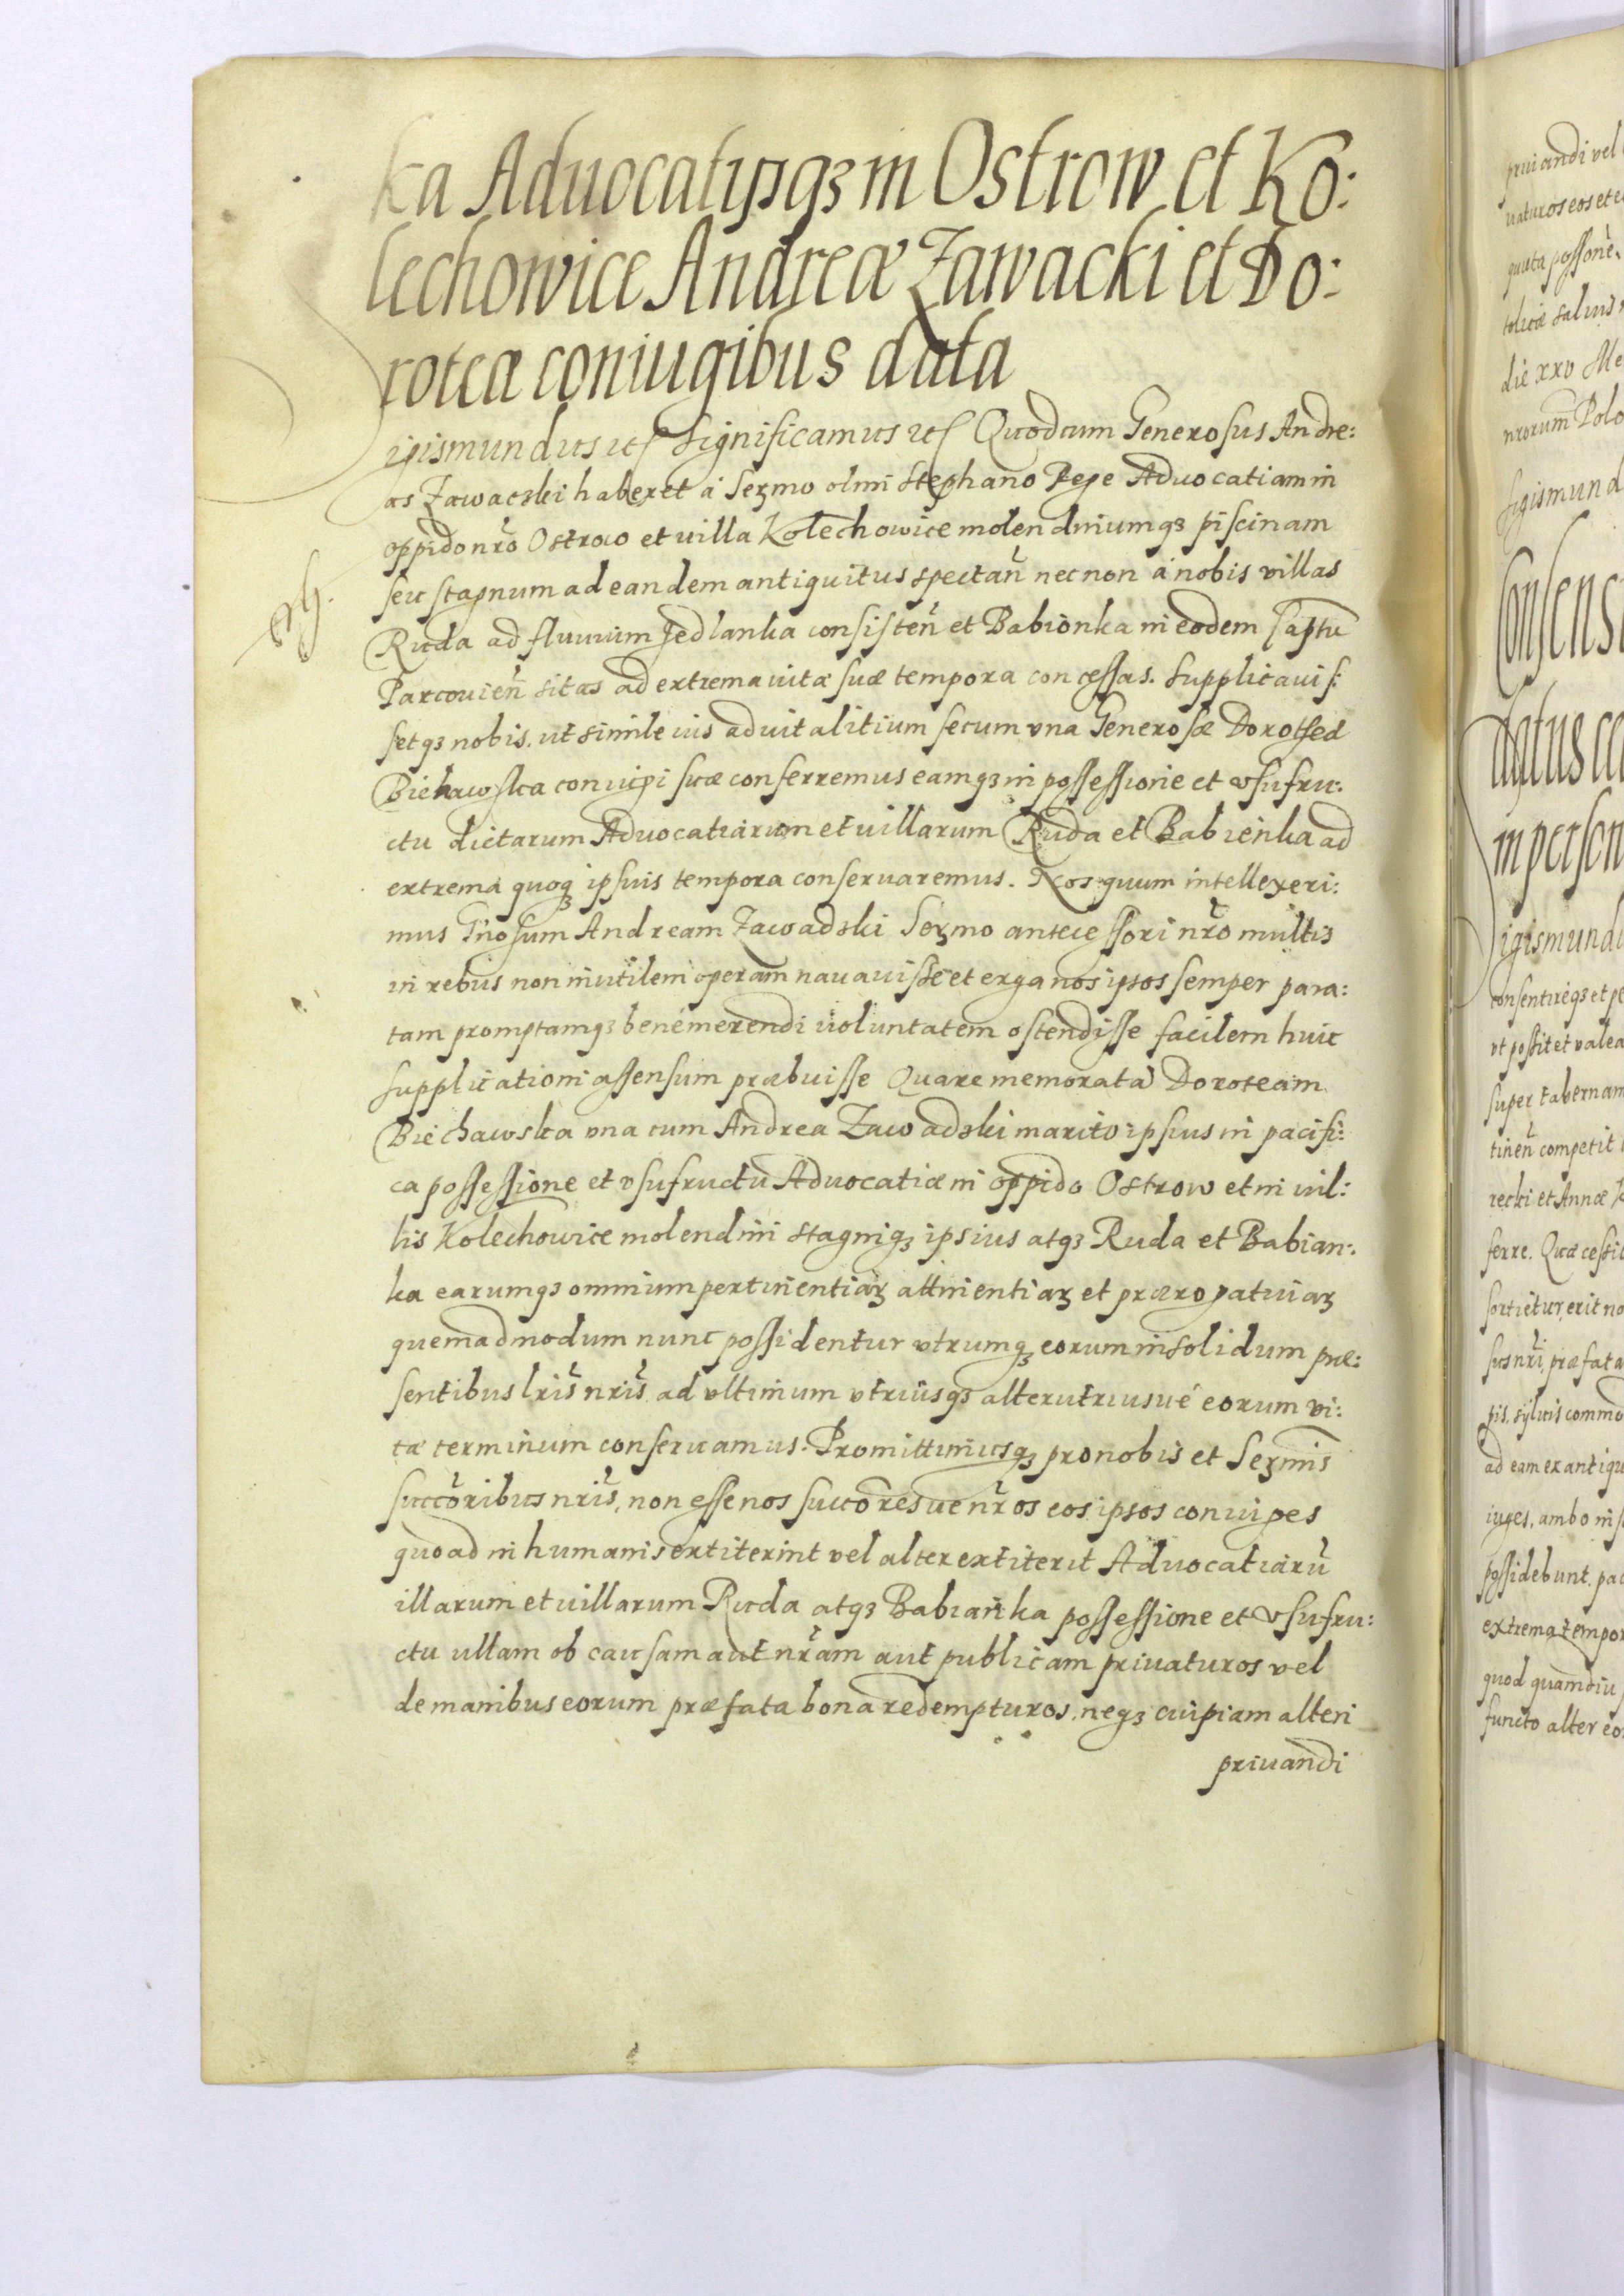 ka Aduocatijsqꝫ in Ostrow et Ko:
lechowice Andreæ Zawacki et Do:
roteæ coniugibus data
Sigismundus etc Significamus etc Quod cum Generosus Andre:
as Zawacski haberet a Serᷤmo olim Stephano Rege Aduocatiam in
oppido nr̃o Ostrow et uilla Kolechowice molendinumqꝫ piscinam
seu stagnum ad eandem antiquitus spectañ necnon a nobis villas
Ruda ad fluuium Jedlanka consisteñ et Babionka in eodem Captu
Parcouieñ sitas ad extrema uitæ suæ tempora concessas. Supplicauis:
setqꝫ nobis, ut simile ius aduitalitium secum vna Generosæ Dorotheæ
Biehawska coniugi suæ conferremus eamqꝫ in possessione et vsufru:
ctu dictarum Aduocatiarum et uillarum Ruda et Babienka ad
extrema quoqꝫ ipsius tempora conseruaremus. Nos quum intellexeri:
mus Gñosum Andream Zawadski Serᷤmo antecessori nr̃o multis
in rebus non inutilem operam nauauisse et erga nos ipsos semper para:
tam promptamqꝫ bene merendi uoluntatem ostendisse facilem huic
supplicationi assensum præbuisse Quare memorata Doroteam
Biechawska vna cum Andrea Zawadski marito ipsius in pacifi:
ca possessione et vsufructu Aduocatiæ in oppido Ostrow et in uil:
lis Kolechowice molendini stagniqꝫ ipsius atqꝫ Ruda et Babian:
ka earumqꝫ omnium pertinentiaꝝ attinentiaꝝ et prærogatiuaꝝ
quemadmodum nunc possidentur vtrumqꝫ eorum in solidum præ:
sentibus lr̃is nr̃is ad vltimum vtriusqꝫ alterutriusue eorum vi:
tæ terminum conseruamus. Promittimusqꝫ pro nobis et Serᷤmis
succõribus nr̃is, non esse nos succõresue nr̃os eos ipsos coniuges
quoad in humanis extiterint vel alter extiterit Aduocatiarũ
illarum et uillarum Ruda atqꝫ Babianka possessione et vsufru:
ctu ullam ob causam aut nr̃am aut publicam priuaturos vel
de manibus eorum præfata bona redempturos, neqꝫ cuipiam alteri
priuandi
priuandi vel
uaturos eos et e
quuta possone,
tolicæ saluis
die xxv Me
nrorum Polo
Sigismund
Consens
datus ce
in person
Sigismund
consentireqꝫ et pe
vt possit et valea
super tabernam
tineñ competit
recki et Annæ K
ferre. Quæ cessio
sortietur, erit no
sus nr̃i, præfata
pis, syluis commo
ad eam ex antiqu
iuges, ambo in s
possidebunt, pac
extrema tempor
quod quamdiu
functo alter eo